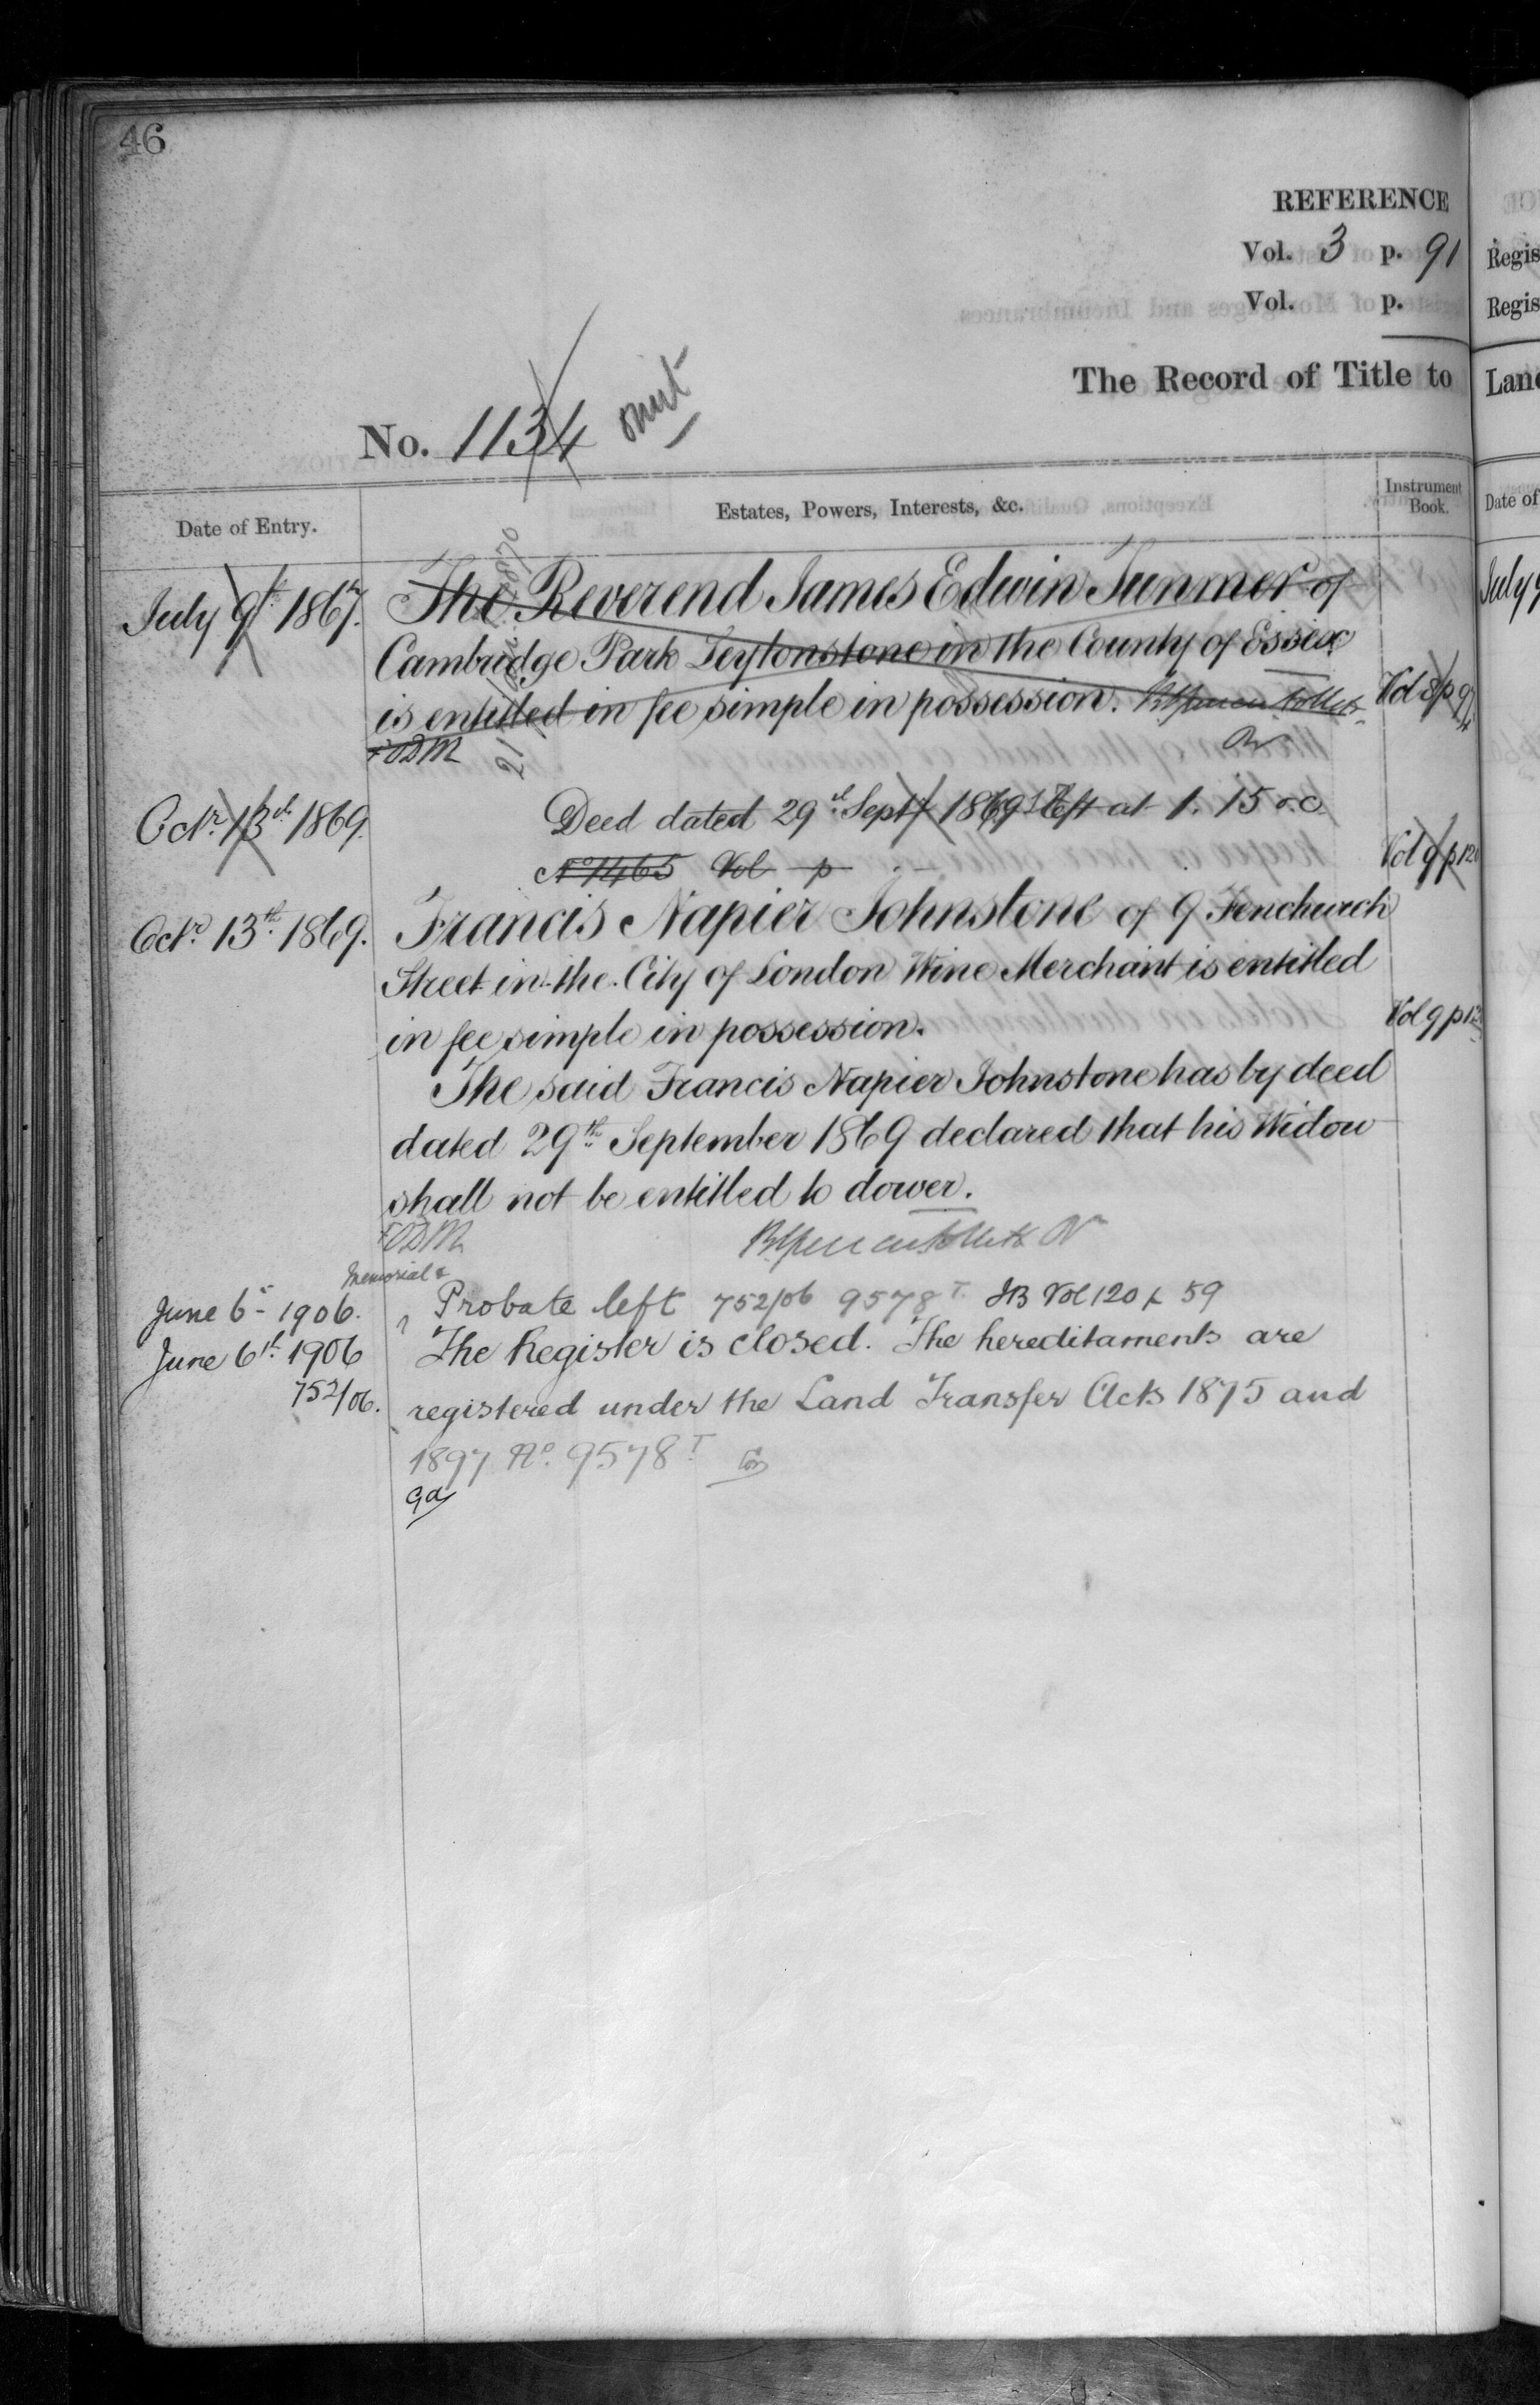 46
REFERENCE
Vol. 3 p. 91
Vol. p.
The Record of Title to
No. 1134 omit
Date of Entry.
Estates, Powers, Interests, &c.
Instrument
Book.
July 9th 1867. The Reverend James Edwin Tunmer of
Cambridge Park Leytonstone in the County of Essex
is entitled in fee simple in possession.
Vol 8 p 94
FODM
Octr 13th 1869. Deed dated 29th Septr 1869 left at 1.15 o.c.
No 1465 Vol p
Vol 9 p 12
Octr 13th 1869. Francis Napier Johnstone of 9 Fenchurch
Street in the City of London Wine Merchant is entitled
in fee simple in possession.
Vol 9 p 12
The said Francis Napier Johnstone has by deed
dated 29th September 1869 declared that his Widow
shall not be entitled to dower.
FODM
Memorial &
June 6th 1906. Probate left 752/06 9578T IB Vol 120 f 59
June 6th 1906 The Register is closed. The hereditaments are
752/06. registered under the Land Transfer Acts 1875 and
1897 No. 9578T
Regis
Regis
Land
Date of
July 9